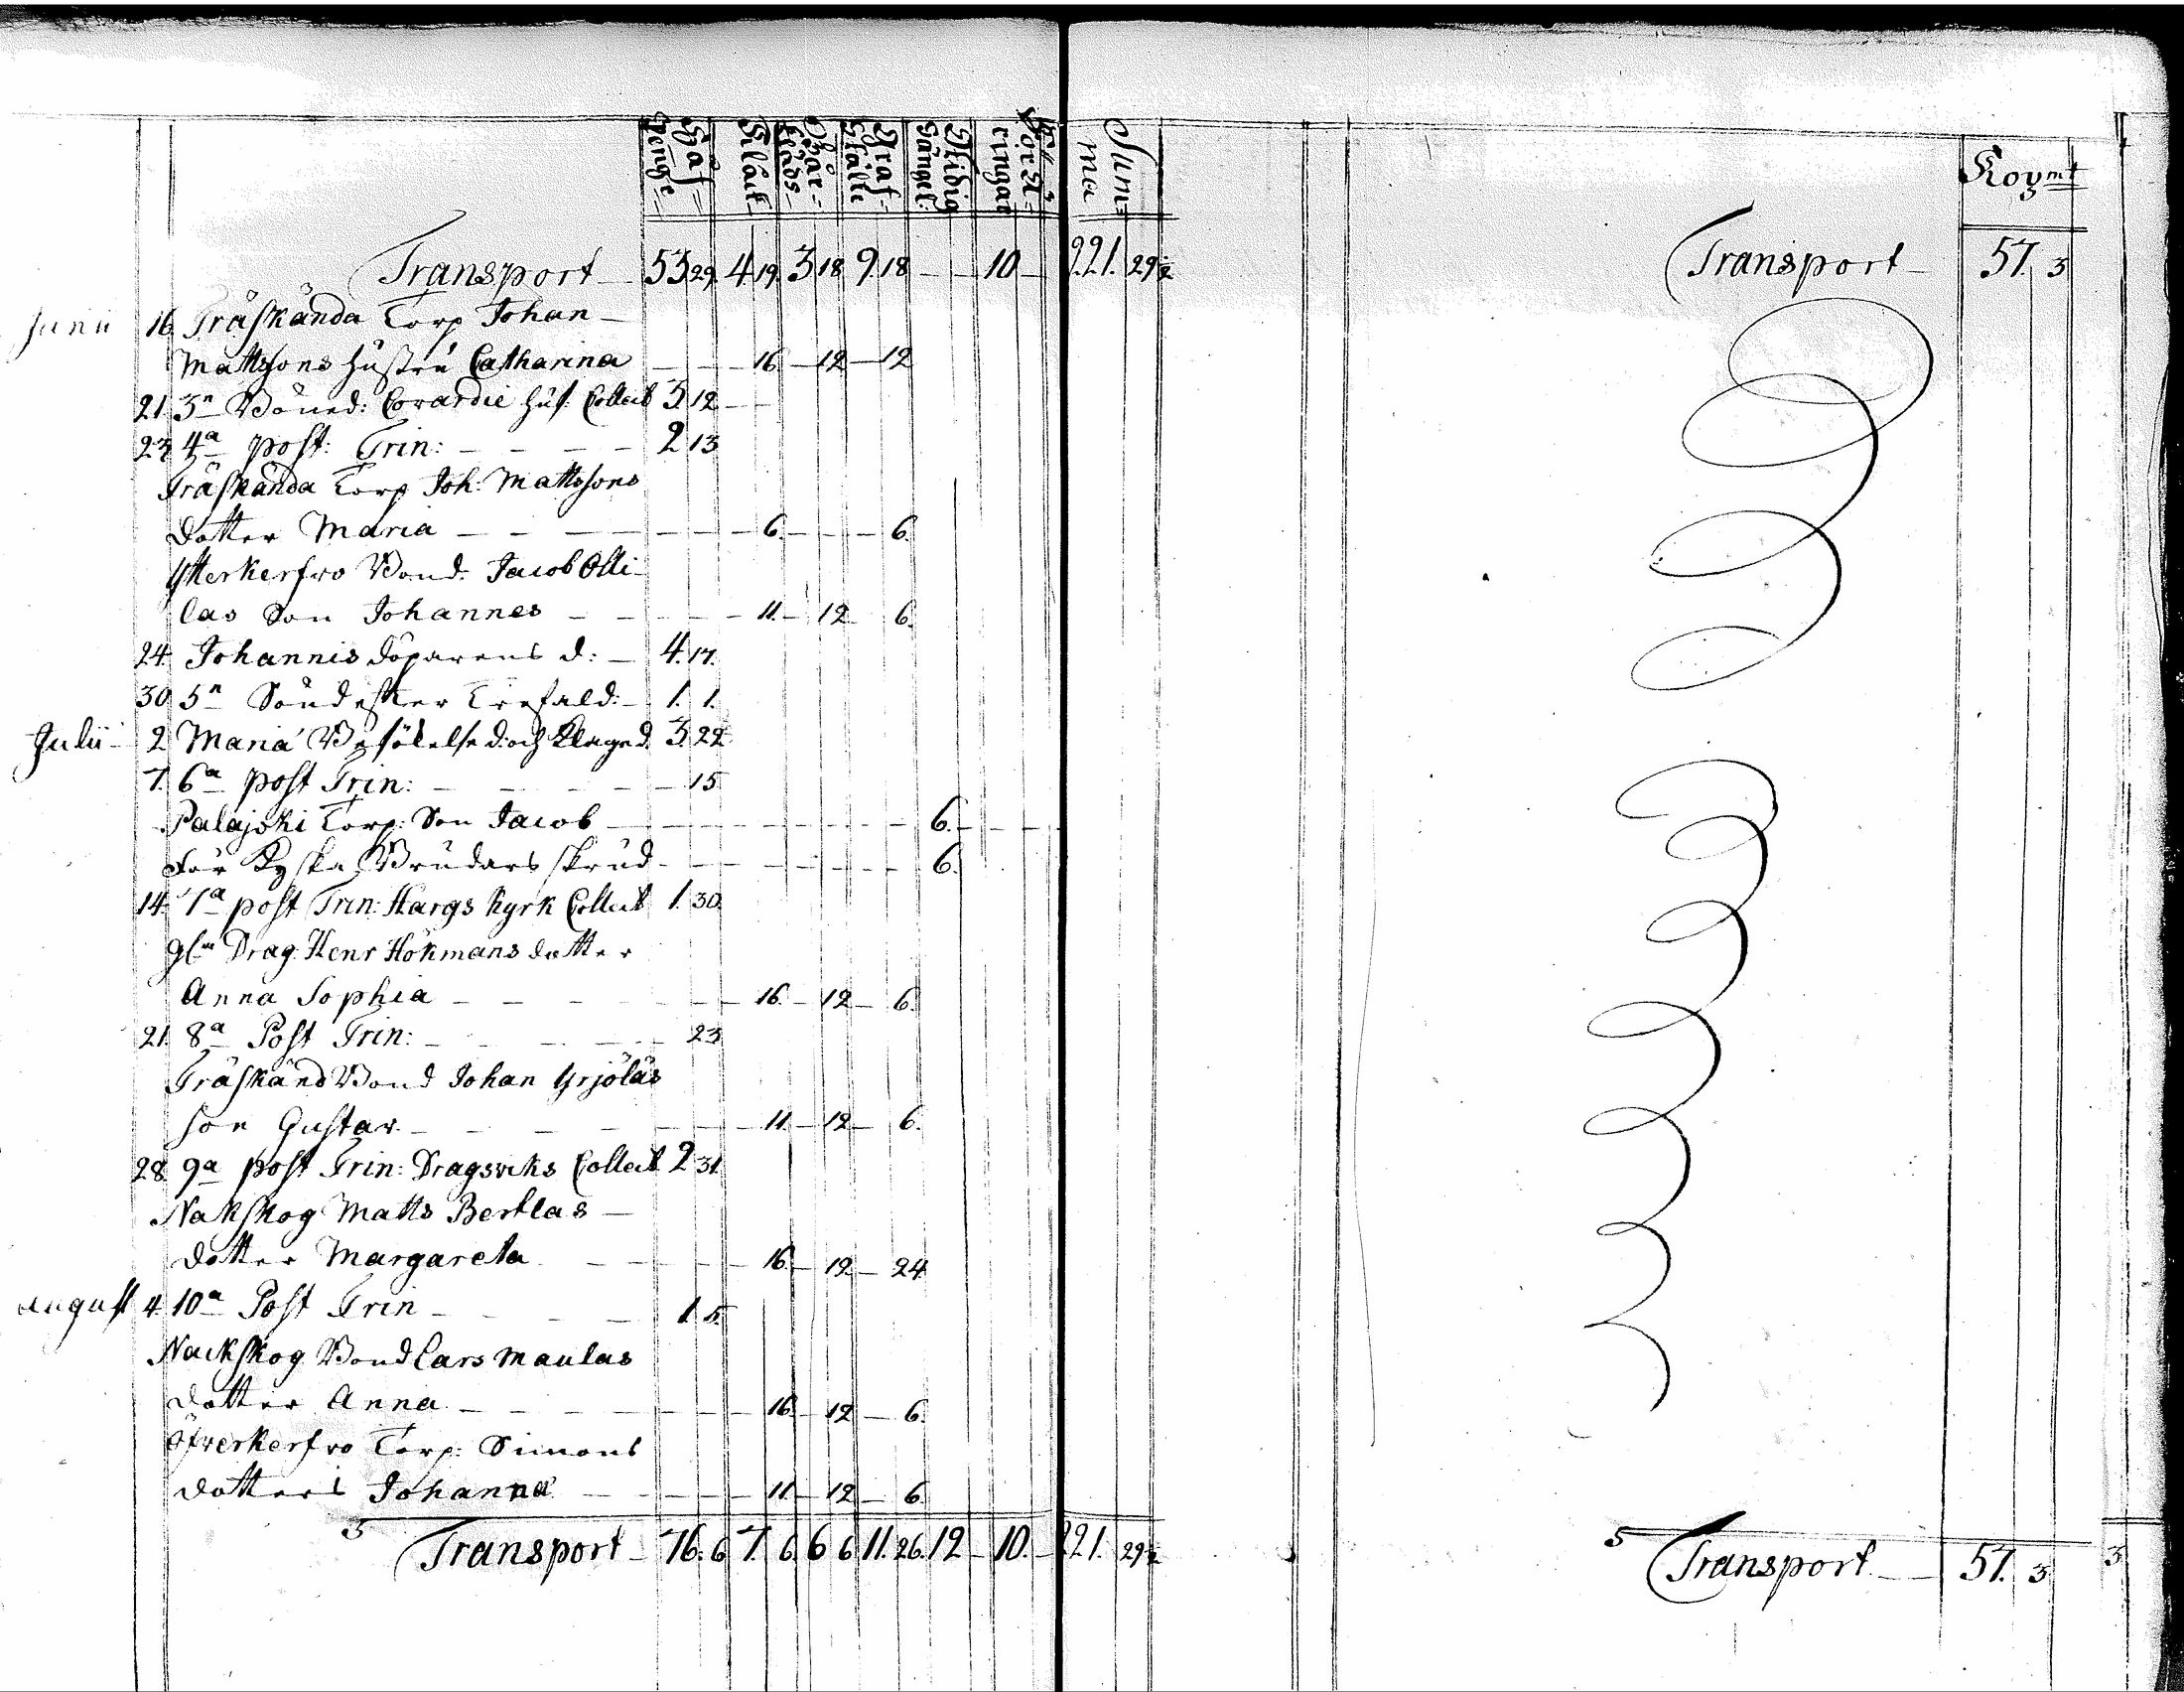 Håf= Penge=
Silbest
Bår= kläds
Graf= Ställe
Stidig Sängel:
Först= ringar
Sum= ma
Koymt
Transport 53 29. 4 19. 3 18 9. 18 — — 10 — 221. 29 2
Transport 57. 3
Junii 16 Träskända Torp Johan
Mattssons hustru Catharina — — 16. — 12 — 12
21 3n Böned: Corardie huf: Collect 3. 12 —
23 4a post: Trin: — — — — 2 13
Träskända Torp Joh: Mattssons
dotter Maria — — — 6. — — 6.
Ytterkerfvo Bond. Jacob Olli
las Son Johannes — — 11. — 12 6.
24. Johannis döparens d: — 4. 17.
30 5n Sönd efter Trefald: — 1. 1.
Julii 2 Mariä Besökelse d: och Klaged. 3. 22
7. 6a post Trin: — — — 15
Palajoki Torp: Son Jacob — — — 6. —
För Kyska Brudars skrud — — — 6.
14. 7a post Trin: Hargs Kyrk Collect 1. 30.
Drag: Henr Hökmans dotter
Anna Sophia — — — 16. — 12 — 6.
21. 8a Post Trin: — — — 23
Träskänd Bond Johan Yrjöläs
son Gustav — — — 11. — 12 — 6.
28 9a post Trin: Dragsviks Collect 2 31
Nakskog Matts Bertlas —
dotter Margareta — — — 16. — 12 — 24
August 4. 10a Post Trin — — — 1. 5.
Nackskog Bond Lars Maulas
dotter Anna — — — 16. — 12 — 6.
Öfverkerfvo Torp: Simons
dotters Johanna — — — 11. — 12 — 6.
3 Transport 76. 6 7. 6. 6 6 11. 26. 12 — 10. — 221. 29 2
5 Transport 57. 3 3